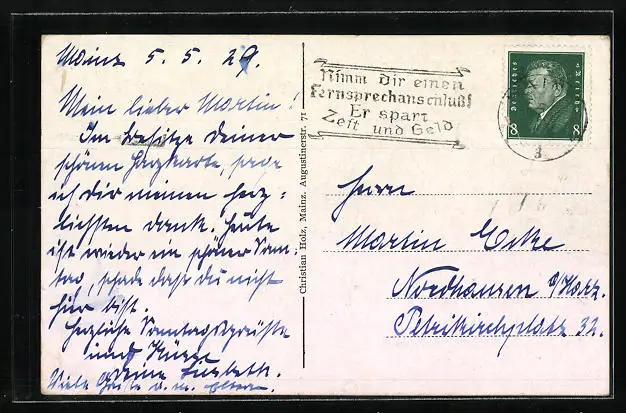 Mainz 5. 5. 29.
Mein lieber Martin!
Im Besitze deiner
schönen Harzkarte, sage
ich dir meinen herz-
lichsten Dank. Heute
ist wieder ein schöner Sonn-
tag, schade dass du nicht
hier bist.
Herzliche Sonntagsgrüsse
und Küsse
deine Lisbeth.
Viele Grüße a. m. Eltern.
Christian Holz, Mainz, Augustinerstr. 71
Nimm Dir einen
Fernsprechanschluß!
Er spart
Zeit und Geld
Deutsches Reich
8 8
Herrn
Martin Ecke
Nordhausen a/Harz.
Petrikirchplatz 32.